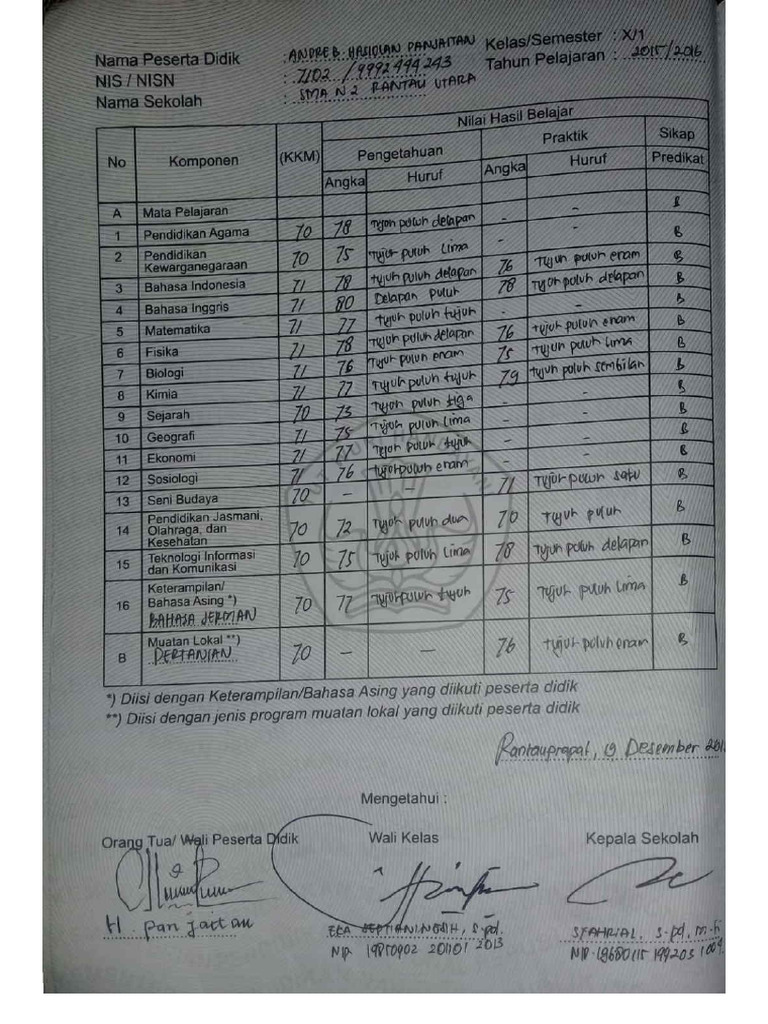 Nama Peserta Didik : ANDRE B. HASIOLAN PANJAITAN Kelas/Semester : X/1
NIS / NISN : 7102 / 9992444243 Tahun Pelajaran : 2015/2016
Nama Sekolah : SMA N 2 RANTAU UTARA
Nilai Hasil Belajar
No Komponen (KKM) Pengetahuan Praktik Sikap
Angka Huruf Angka Huruf Predikat
A Mata Pelajaran B
1 Pendidikan Agama 70 78 Tujuh puluh delapan - - B
2 Pendidikan Kewarganegaraan 70 75 Tujuh puluh Lima - - B
3 Bahasa Indonesia 71 78 Tujuh puluh delapan 76 Tujuh puluh enam B
4 Bahasa Inggris 71 80 Delapan puluh 78 Tujuh puluh delapan B
5 Matematika 71 77 Tujuh puluh tujuh - - B
6 Fisika 71 78 Tujuh puluh delapan 76 Tujuh puluh enam B
7 Biologi 71 76 Tujuh puluh enam 75 Tujuh puluh Lima B
8 Kimia 71 77 Tujuh puluh tujuh 79 Tujuh puluh sembilan B
9 Sejarah 70 73 Tujuh puluh tiga - - B
10 Geografi 71 75 Tujuh puluh Lima - - B
11 Ekonomi 71 77 Tujuh puluh tujuh - - B
12 Sosiologi 71 76 Tujuh puluh enam - - B
13 Seni Budaya 70 - - 71 Tujuh puluh satu B
14 Pendidikan Jasmani, Olahraga, dan Kesehatan 70 72 Tujuh puluh dua 70 Tujuh puluh B
15 Teknologi Informasi dan Komunikasi 70 75 Tujuh puluh Lima 78 Tujuh puluh delapan B
16 Keterampilan/ Bahasa Asing *) BAHASA JERMAN 70 77 Tujuh puluh tujuh 75 Tujuh puluh Lima B
B Muatan Lokal **) PERTANIAN 70 - - 76 Tujuh puluh enam B
*) Diisi dengan Keterampilan/Bahasa Asing yang diikuti peserta didik
**) Diisi dengan jenis program muatan lokal yang diikuti peserta didik
Rantauprapat, 19 Desember 201
Mengetahui :
Orang Tua/ Wali Peserta Didik Wali Kelas Kepala Sekolah
H. Panjaitan EKA SEPTIANINGSIH, S.pd. SYAHRIAL. S.pd, m.fi
NIP. 19850902 201101 2013 NIP. 19680115 199203 1009